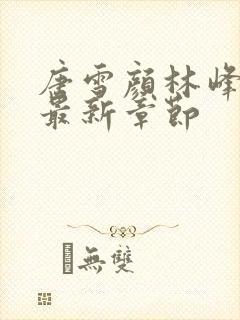 唐雪顏林峰
最新章節
無雙